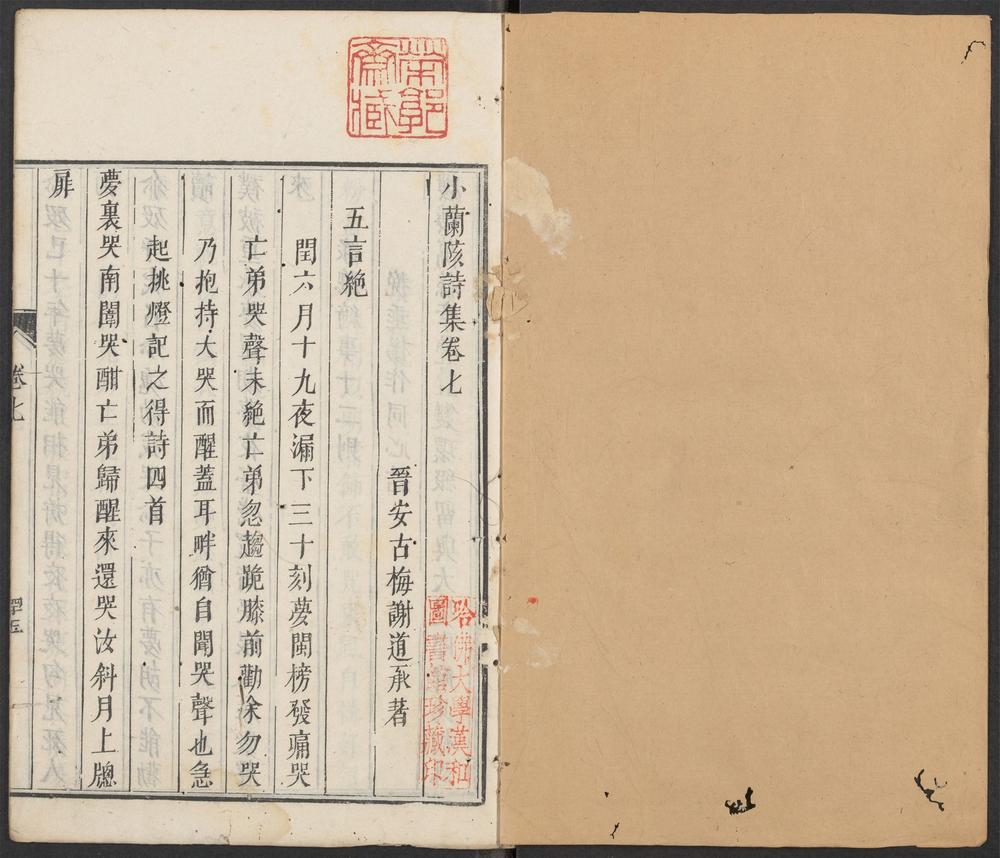 小蘭陔詩集卷七
晉安古梅謝道承著
五言絕
閏六月十九夜漏下三十刻夢閩榜發痛哭
亡弟哭聲未絕亡弟忽趨跪膝前勸余勿哭
乃抱持大哭而醒蓋耳畔猶自聞哭聲也急
起挑燈記之得詩四首
夢裏哭南闈哭酣亡弟歸醒來還哭汝斜月上牕
扉
卷七
哈佛大學漢和
圖書館珍藏印
齋藏